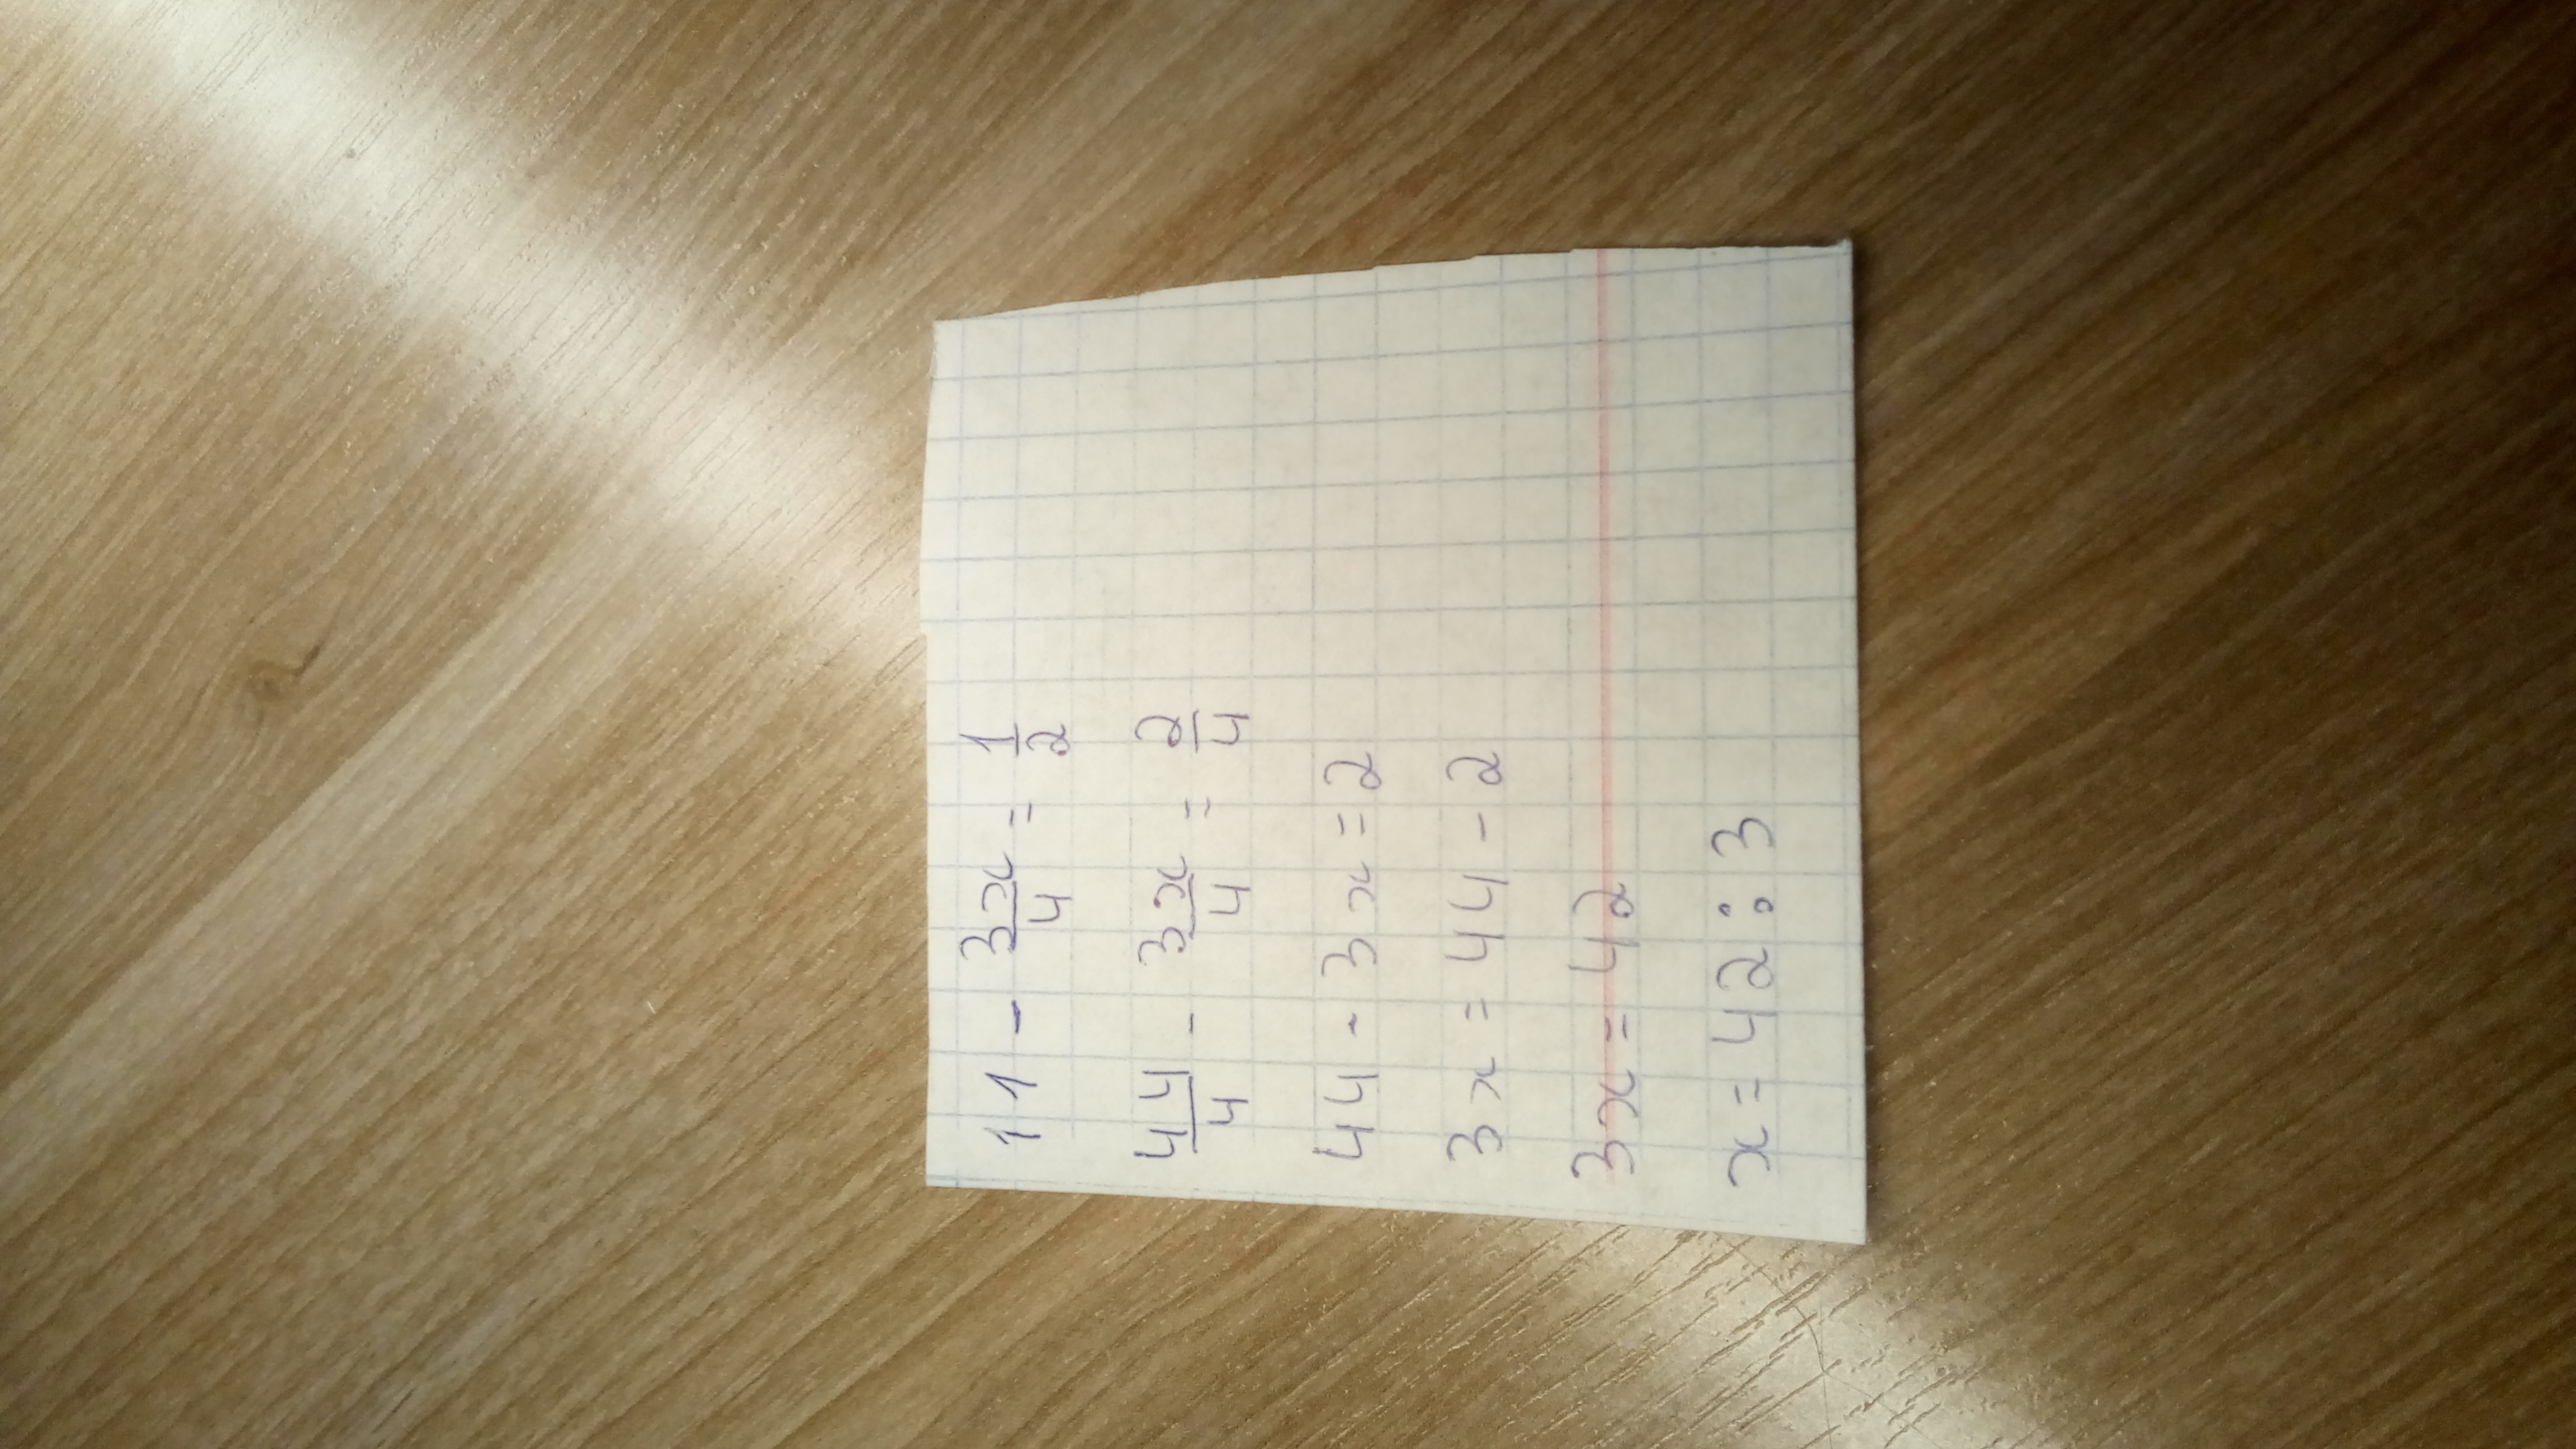 11 - 3x/4 = 1/2
44/4 - 3x/4 = 2/4
44 - 3x = 2
3x = 44 - 2
3x = 42
x = 42 : 3